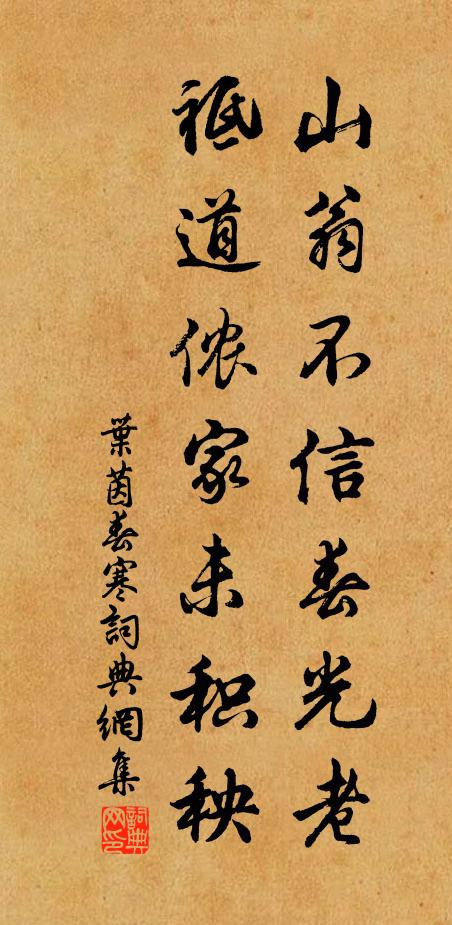 山翁不信春光老
祗道侬家未积秧
葉茵春寒詞典網集
詞典网印